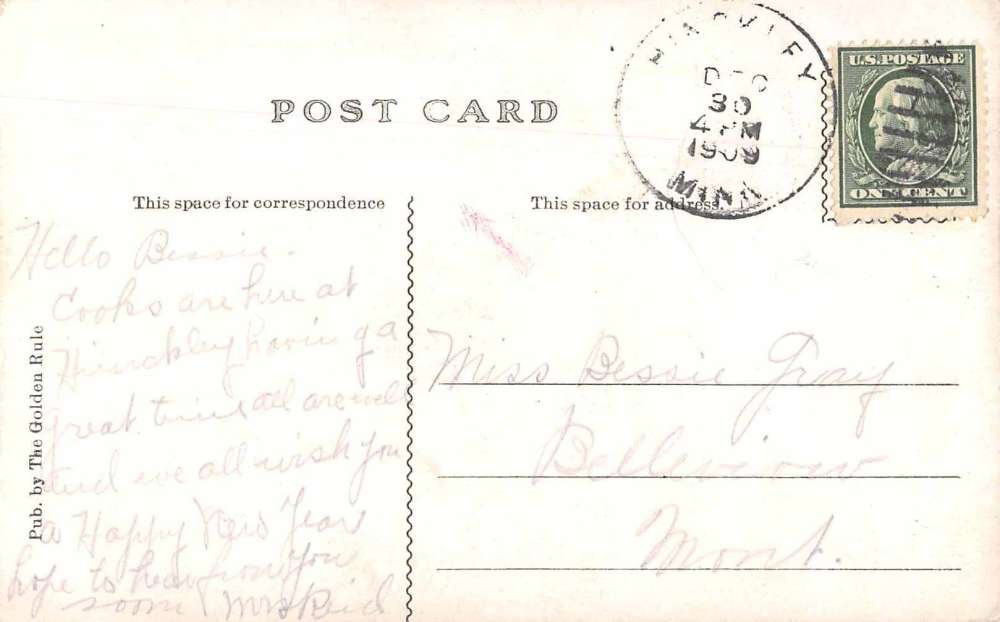 POST CARD
HINCKLEY
DEC
30
4 PM
1909
MINN
U.S. POSTAGE
ONE CENT
This space for correspondence
This space for address.
Hello Bessie.
Cooks are here at
Hinckley having a
great time all are well
and we all wish you
a Happy New Year
hope to hear from you
soon Mrs Reid
Pub. by The Golden Rule
Miss Bessie Gray
Belleview
Mont.